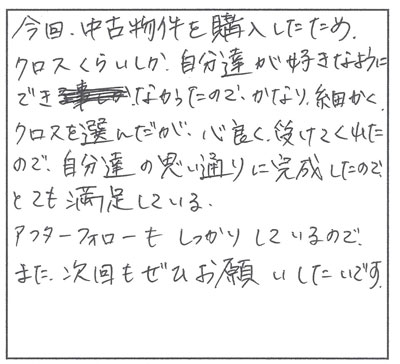 今回、中古物件を購入したため、
クロスくらいしか、自分達が好きなように
できなかったので、かなり、細かく、
クロスを選んだが、心良く、受けてくれた
ので、自分達の思い通りに完成したので、
とても満足している。
アフターフォローもしっかりしているので、
また、次回もぜひお願いしたいです。